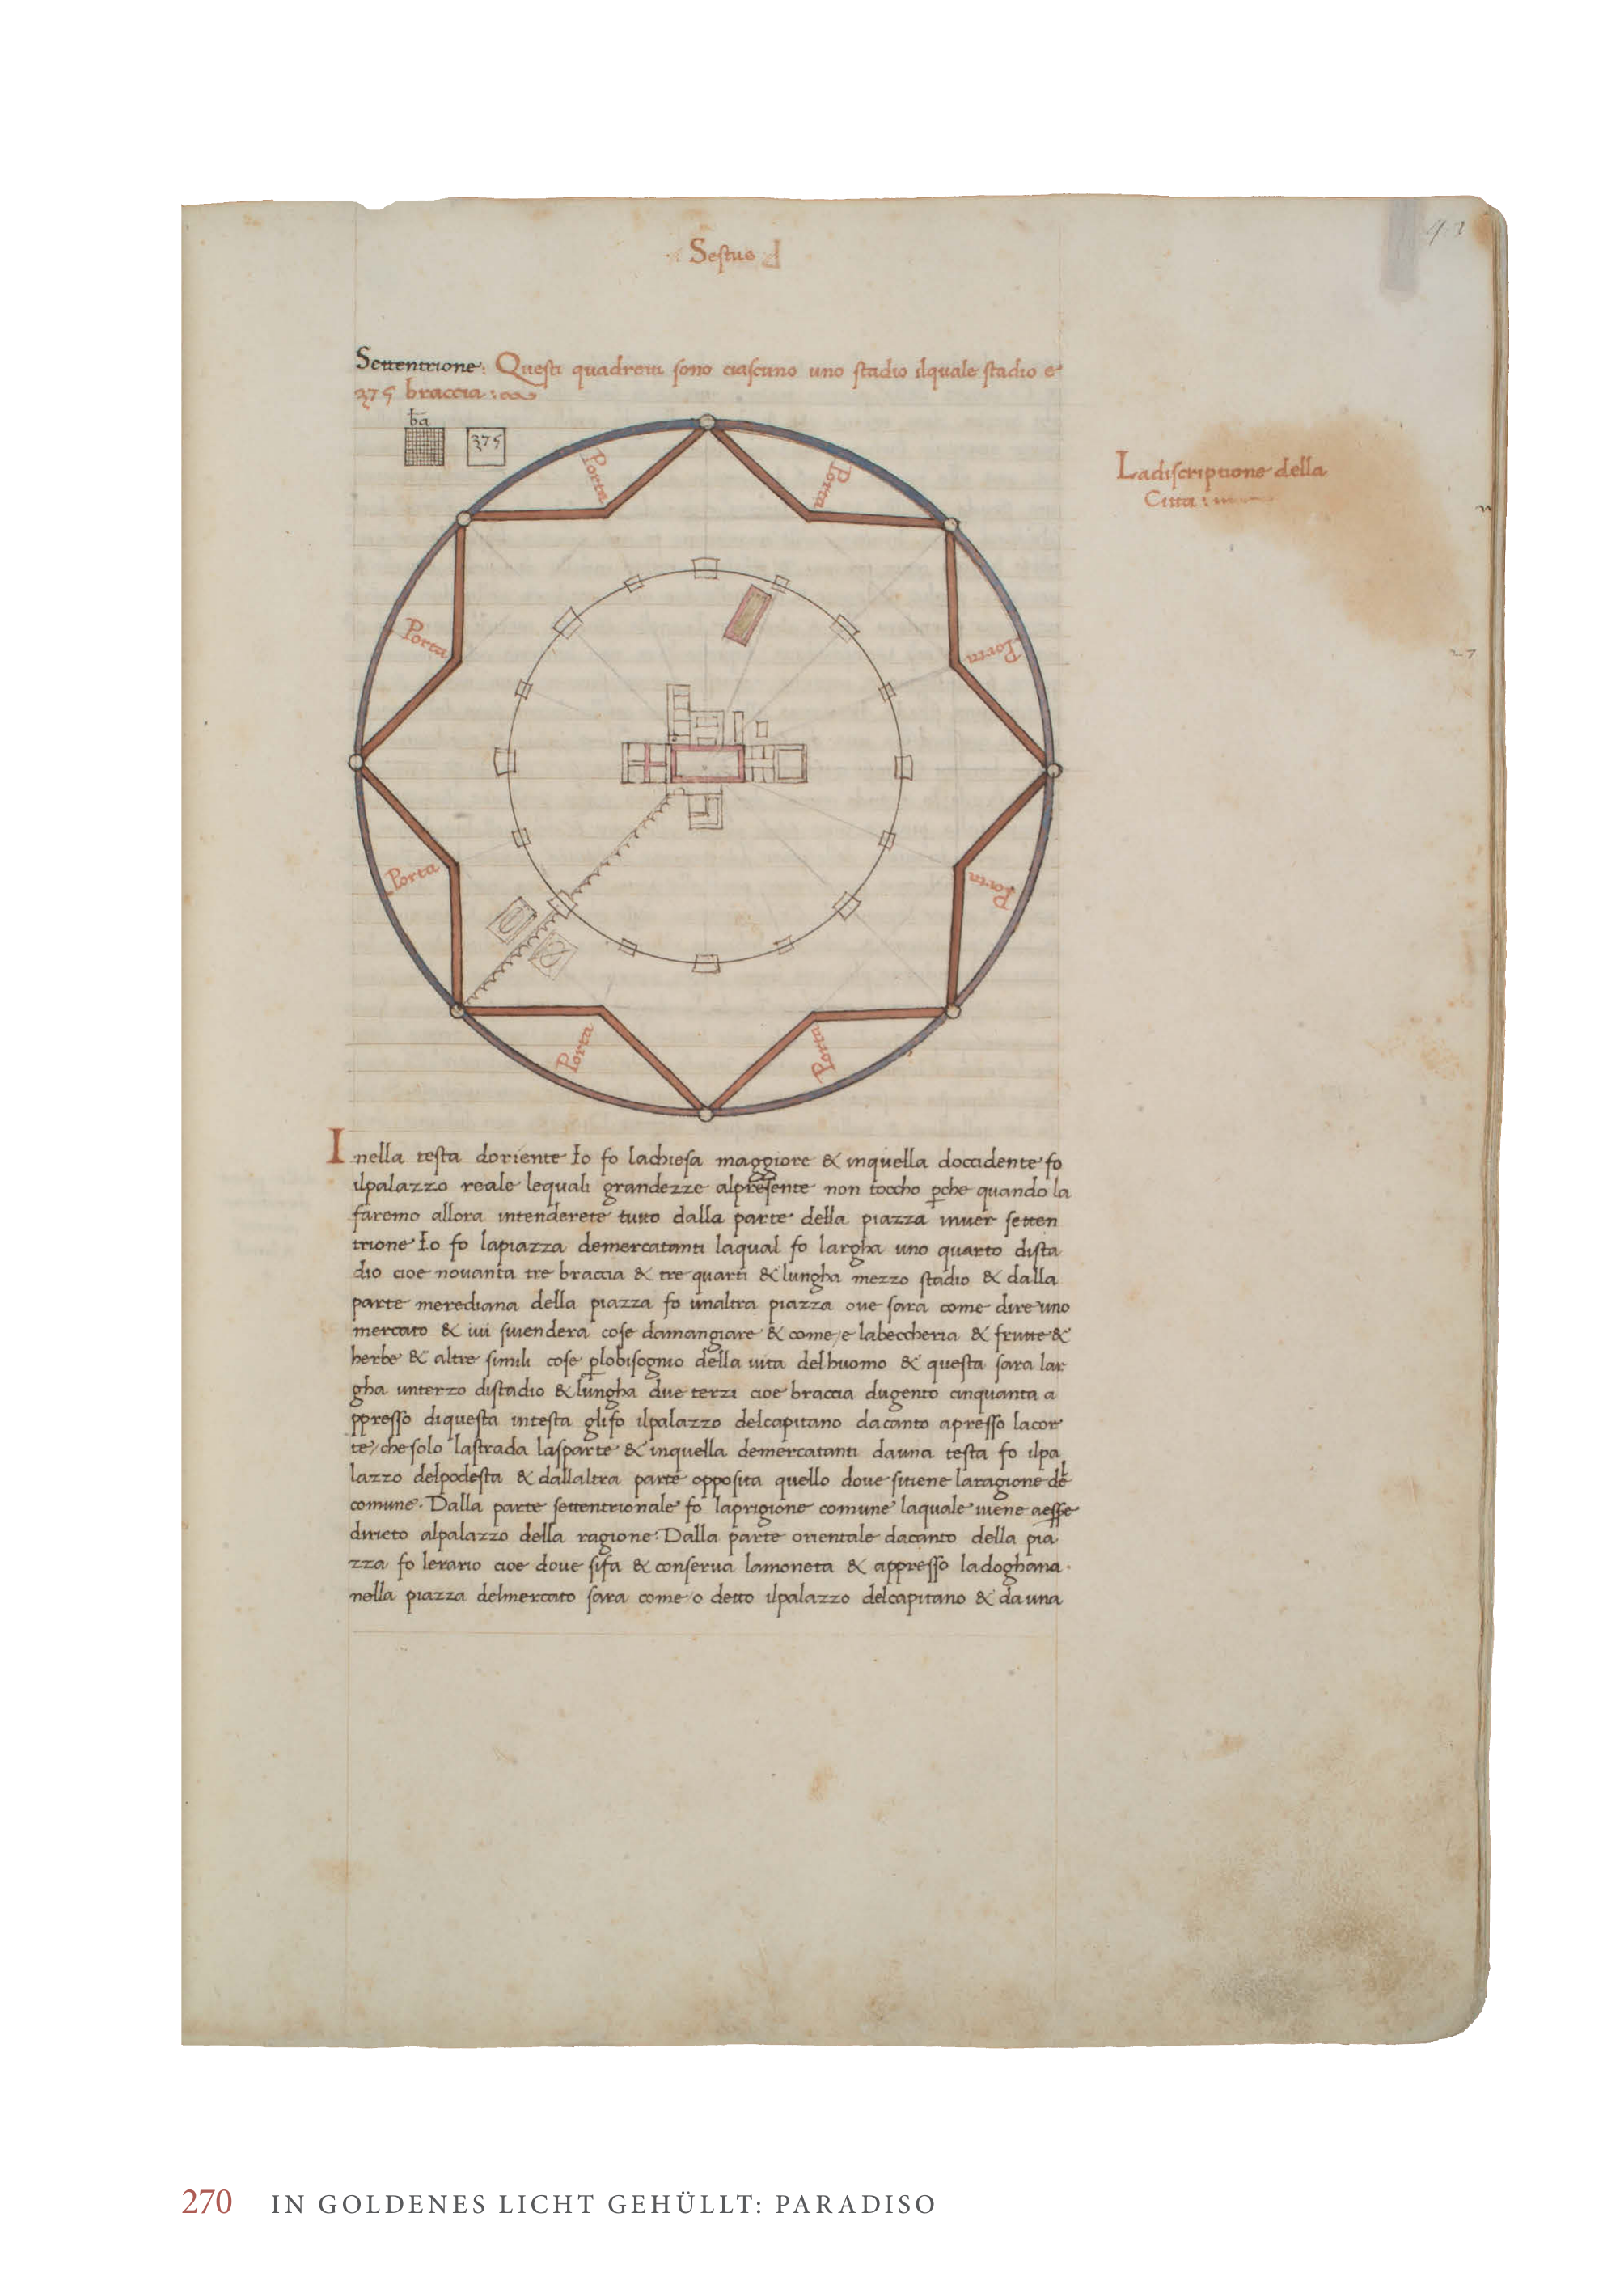 Sestus
Settentrione: Questi quadretti sono ciascuno uno stadio ilquale stadio e
375 braccia:
ba
375
Porta
Porta
Ladiscriptione della
Citta:
Porta
Porta
27
Porta
Porta
Porta
Porta
Inella testa doriente Io fo lachiesa maggiore & inquella doccidente fo
ilpalazzo reale lequali grandezze alpresente non toccho pche quando la
faremo allora intenderete tutto dalla parte della piazza inuer setten
trione Io fo lapiazza demercatanti laqual fo largha uno quarto dista
dio cioe nouanta tre braccia & tre quarti & lungha mezzo stadio & dalla
parte merediana della piazza fo unaltra piazza oue sara come dire uno
mercato & iui siuendera cose damangiare & come e labeccheria & frutte &
herbe & altre simili cose plobisogno della uita delhuomo & questa sara lar
gha unterzo distadio & lungha due terzi cioe braccia dugento cinquanta a
ppresso diquesta intesta glifo ilpalazzo delcapitano dacanto apresso lacor
te, che solo lastrada lasparte & inquella demercatanti dauna testa fo ilpa
lazzo delpodesta & dallaltra parte opposita quello doue sitiene laragione del
comune. Dalla parte settentrionale fo laprigione comune laquale uiene aesse
drieto alpalazzo della ragione: Dalla parte orientale dacanto della pia
zza fo lerario cioe doue sifa & conserua lamoneta & appresso ladoghana.
nella piazza delmercato sara come o detto ilpalazzo delcapitano & dauna
270 IN GOLDENES LICHT GEHÜLLT: PARADISO